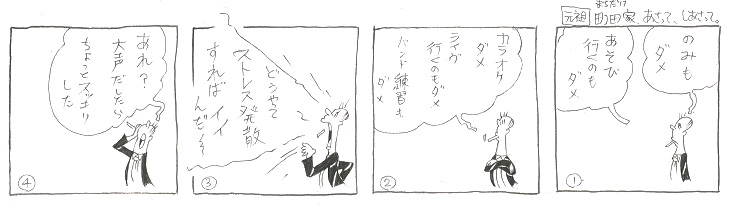 まちだけ
元祖 町田家、あさって、しあさって。
のみも
ダメ
あそび
行くのも
ダメ
①
カラオケ
ダメ
ライヴ
行くのもダメ
バンド練習も
ダメ
②
どうやって
ストレス発散
すればイイ
んだ〜
③
あれ？
大声だしたら
ちょっとスッキリ
した
④